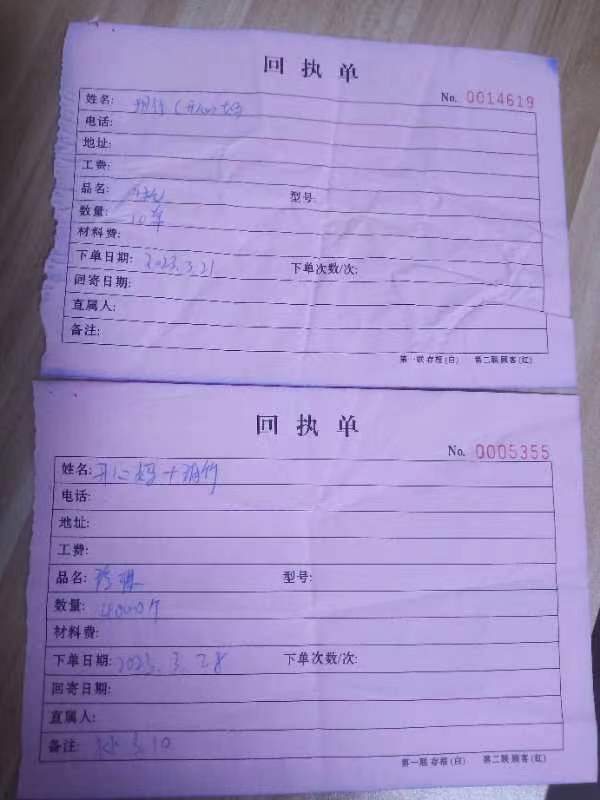 回执单
No. 0014619
姓名:
电话:
地址:
工费:
品名: 型号:
数量: 10
材料费:
下单日期: 2023.3.21 下单次数/次:
回寄日期:
直属人:
备注:
第一联存根(白) 第二联顾客(红)
回执单
No. 0005355
姓名: 开心妈+明竹
电话:
地址:
工费:
品名: 型号:
数量: 4000个
材料费:
下单日期: 2023.3.28 下单次数/次:
回寄日期:
直属人:
备注: 10
第一联存根(白) 第二联顾客(红)